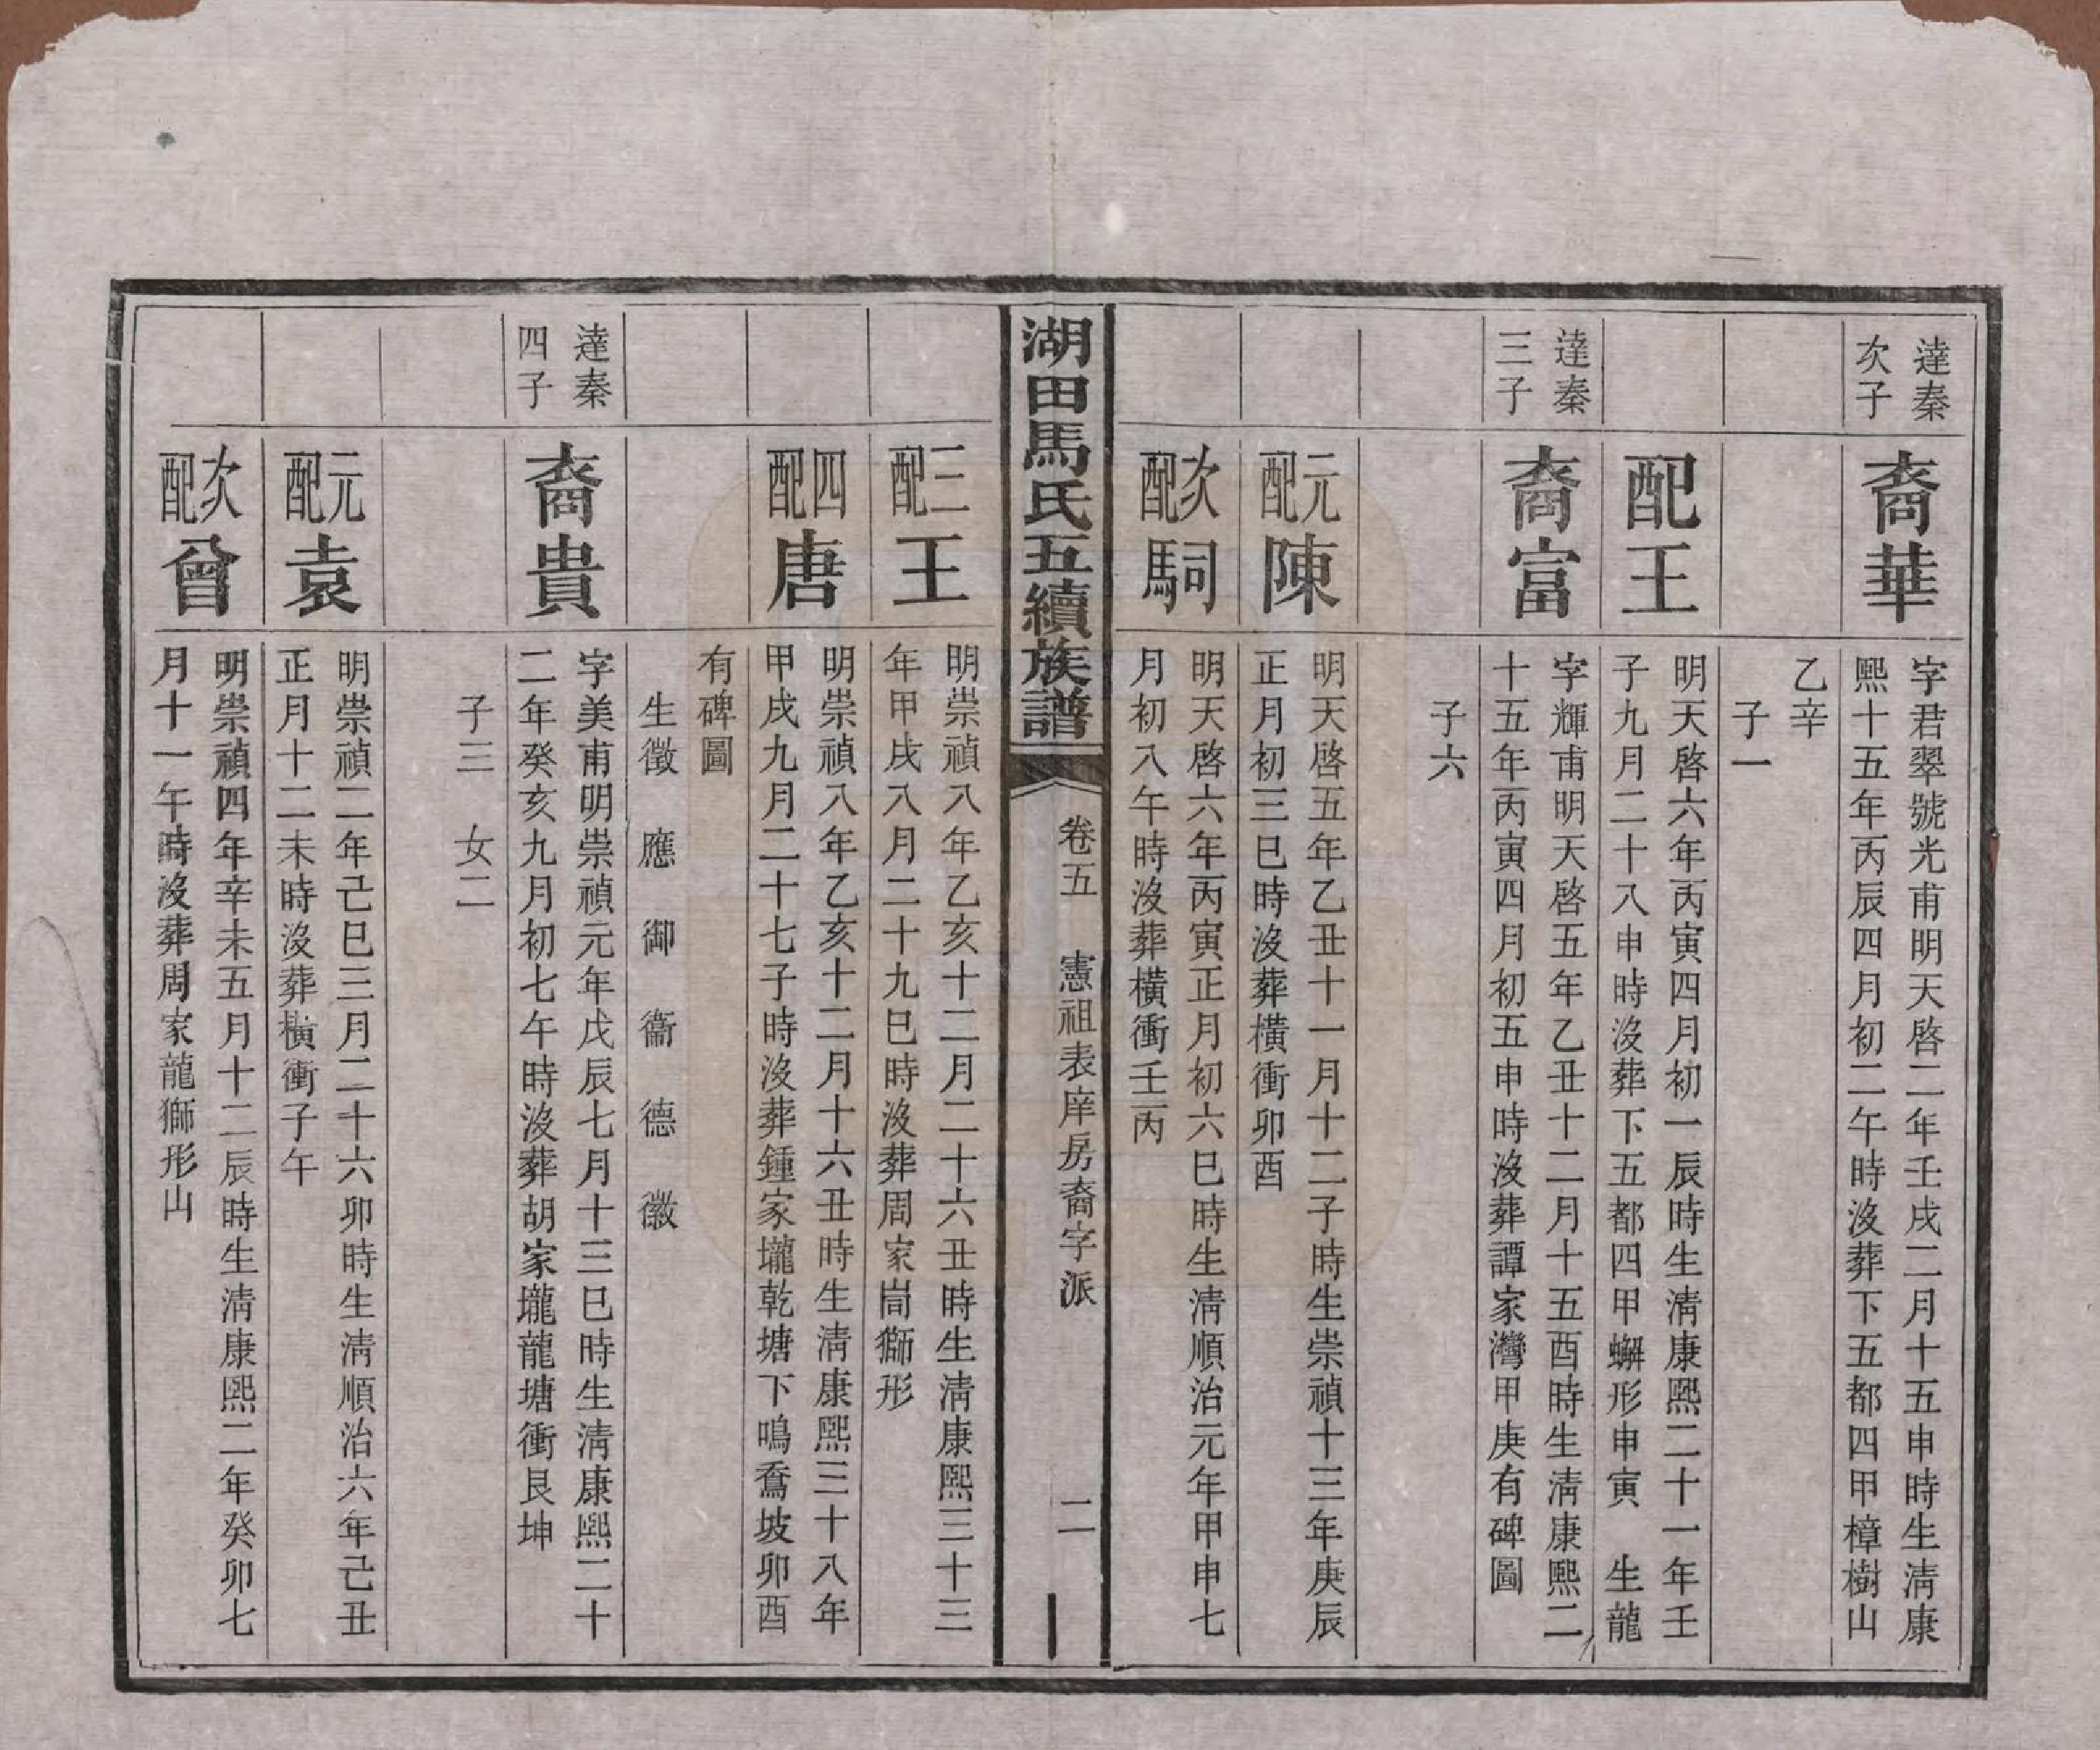 達秦
次子
裔華
字君翠號光甫明天啓二年壬戌二月十五申時生淸康
熙十五年丙辰四月初二午時沒葬下五都四甲樟樹山
乙辛
子一
配王
明天啓六年丙寅四月初一辰時生淸康熙二十一年壬
子九月二十八申時沒葬下五都四甲蠏形申寅　生龍
達秦
三子
裔富
字輝甫明天啓五年乙丑十二月十五酉時生淸康熙二
十五年丙寅四月初五申時沒葬譚家灣甲庚有碑圖
子六
元配陳
明天啓五年乙丑十一月十二子時生崇禎十三年庚辰
正月初三巳時沒葬橫衝卯酉
次配駉
明天啓六年丙寅正月初六巳時生淸順治元年甲申七
月初八午時沒葬橫衝壬丙
湖田馬氏五續族譜
卷五　憲祖表庠房裔字派　二
三配王
明崇禎八年乙亥十二月二十六丑時生淸康熙三十三
年甲戌八月二十九巳時沒葬周家峝獅形
四配唐
明崇禎八年乙亥十二月十六丑時生淸康熙三十八年
甲戌九月二十七子時沒葬鍾家壠乾塘下鳴鴌坡卯酉
有碑圖
生徵　應　御　衞　德　徽
達秦
四子
裔貴
字美甫明崇禎元年戊辰七月十三巳時生淸康熙二十
二年癸亥九月初七午時沒葬胡家壠龍塘衝艮坤
子三　女二
元配袁
明崇禎二年己巳三月二十六卯時生淸順治六年己丑
正月十二未時沒葬橫衝子午
次配曾
明崇禎四年辛未五月十二辰時生淸康熙二年癸卯七
月十一午時沒葬周家龍獅形山